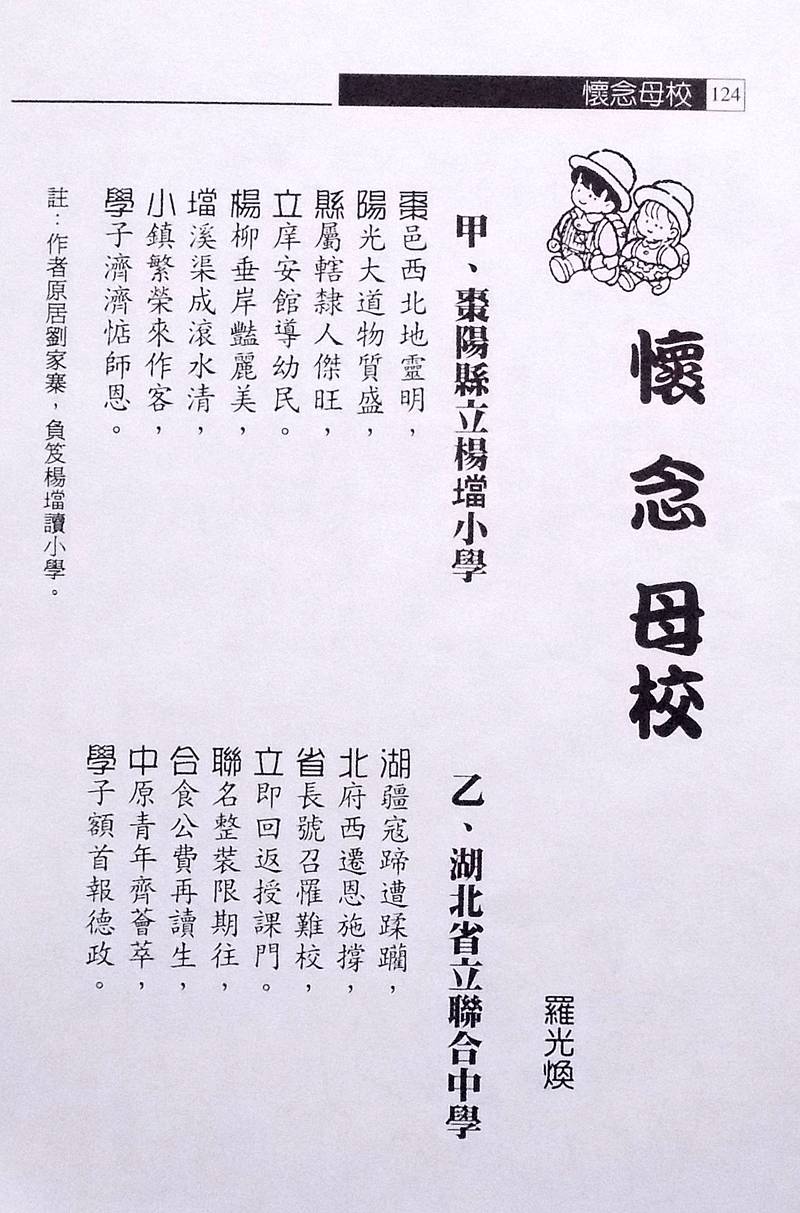 懷念母校 124
懷念母校
羅光煥
甲、棗陽縣立楊壋小學
棗邑西北地靈明，
陽光大道物質盛，
縣屬轄隸人傑旺，
立庠安館導幼民。
楊柳垂岸豔麗美，
壋溪渠成滾水清，
小鎮繁榮來作客，
學子濟濟惦師恩。
註：作者原居劉家寨，負笈楊壋讀小學。
乙、湖北省立聯合中學
湖疆寇蹄遭蹂躪，
北府西遷恩施撐，
省長號召罹難校，
立即回返授課門。
聯名整裝限期往，
合食公費再讀生，
中原青年齊薈萃，
學子額首報德政。